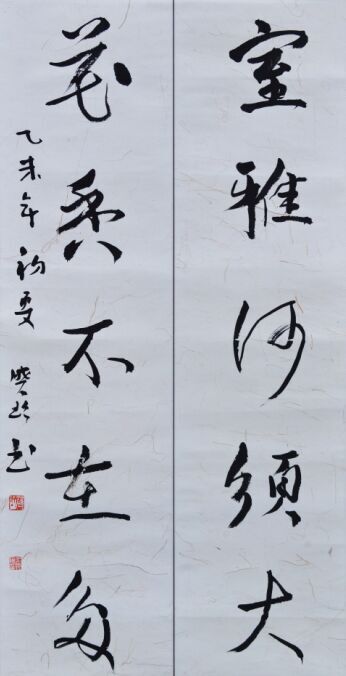 室雅何须大
花香不在多
乙未年初夏
书